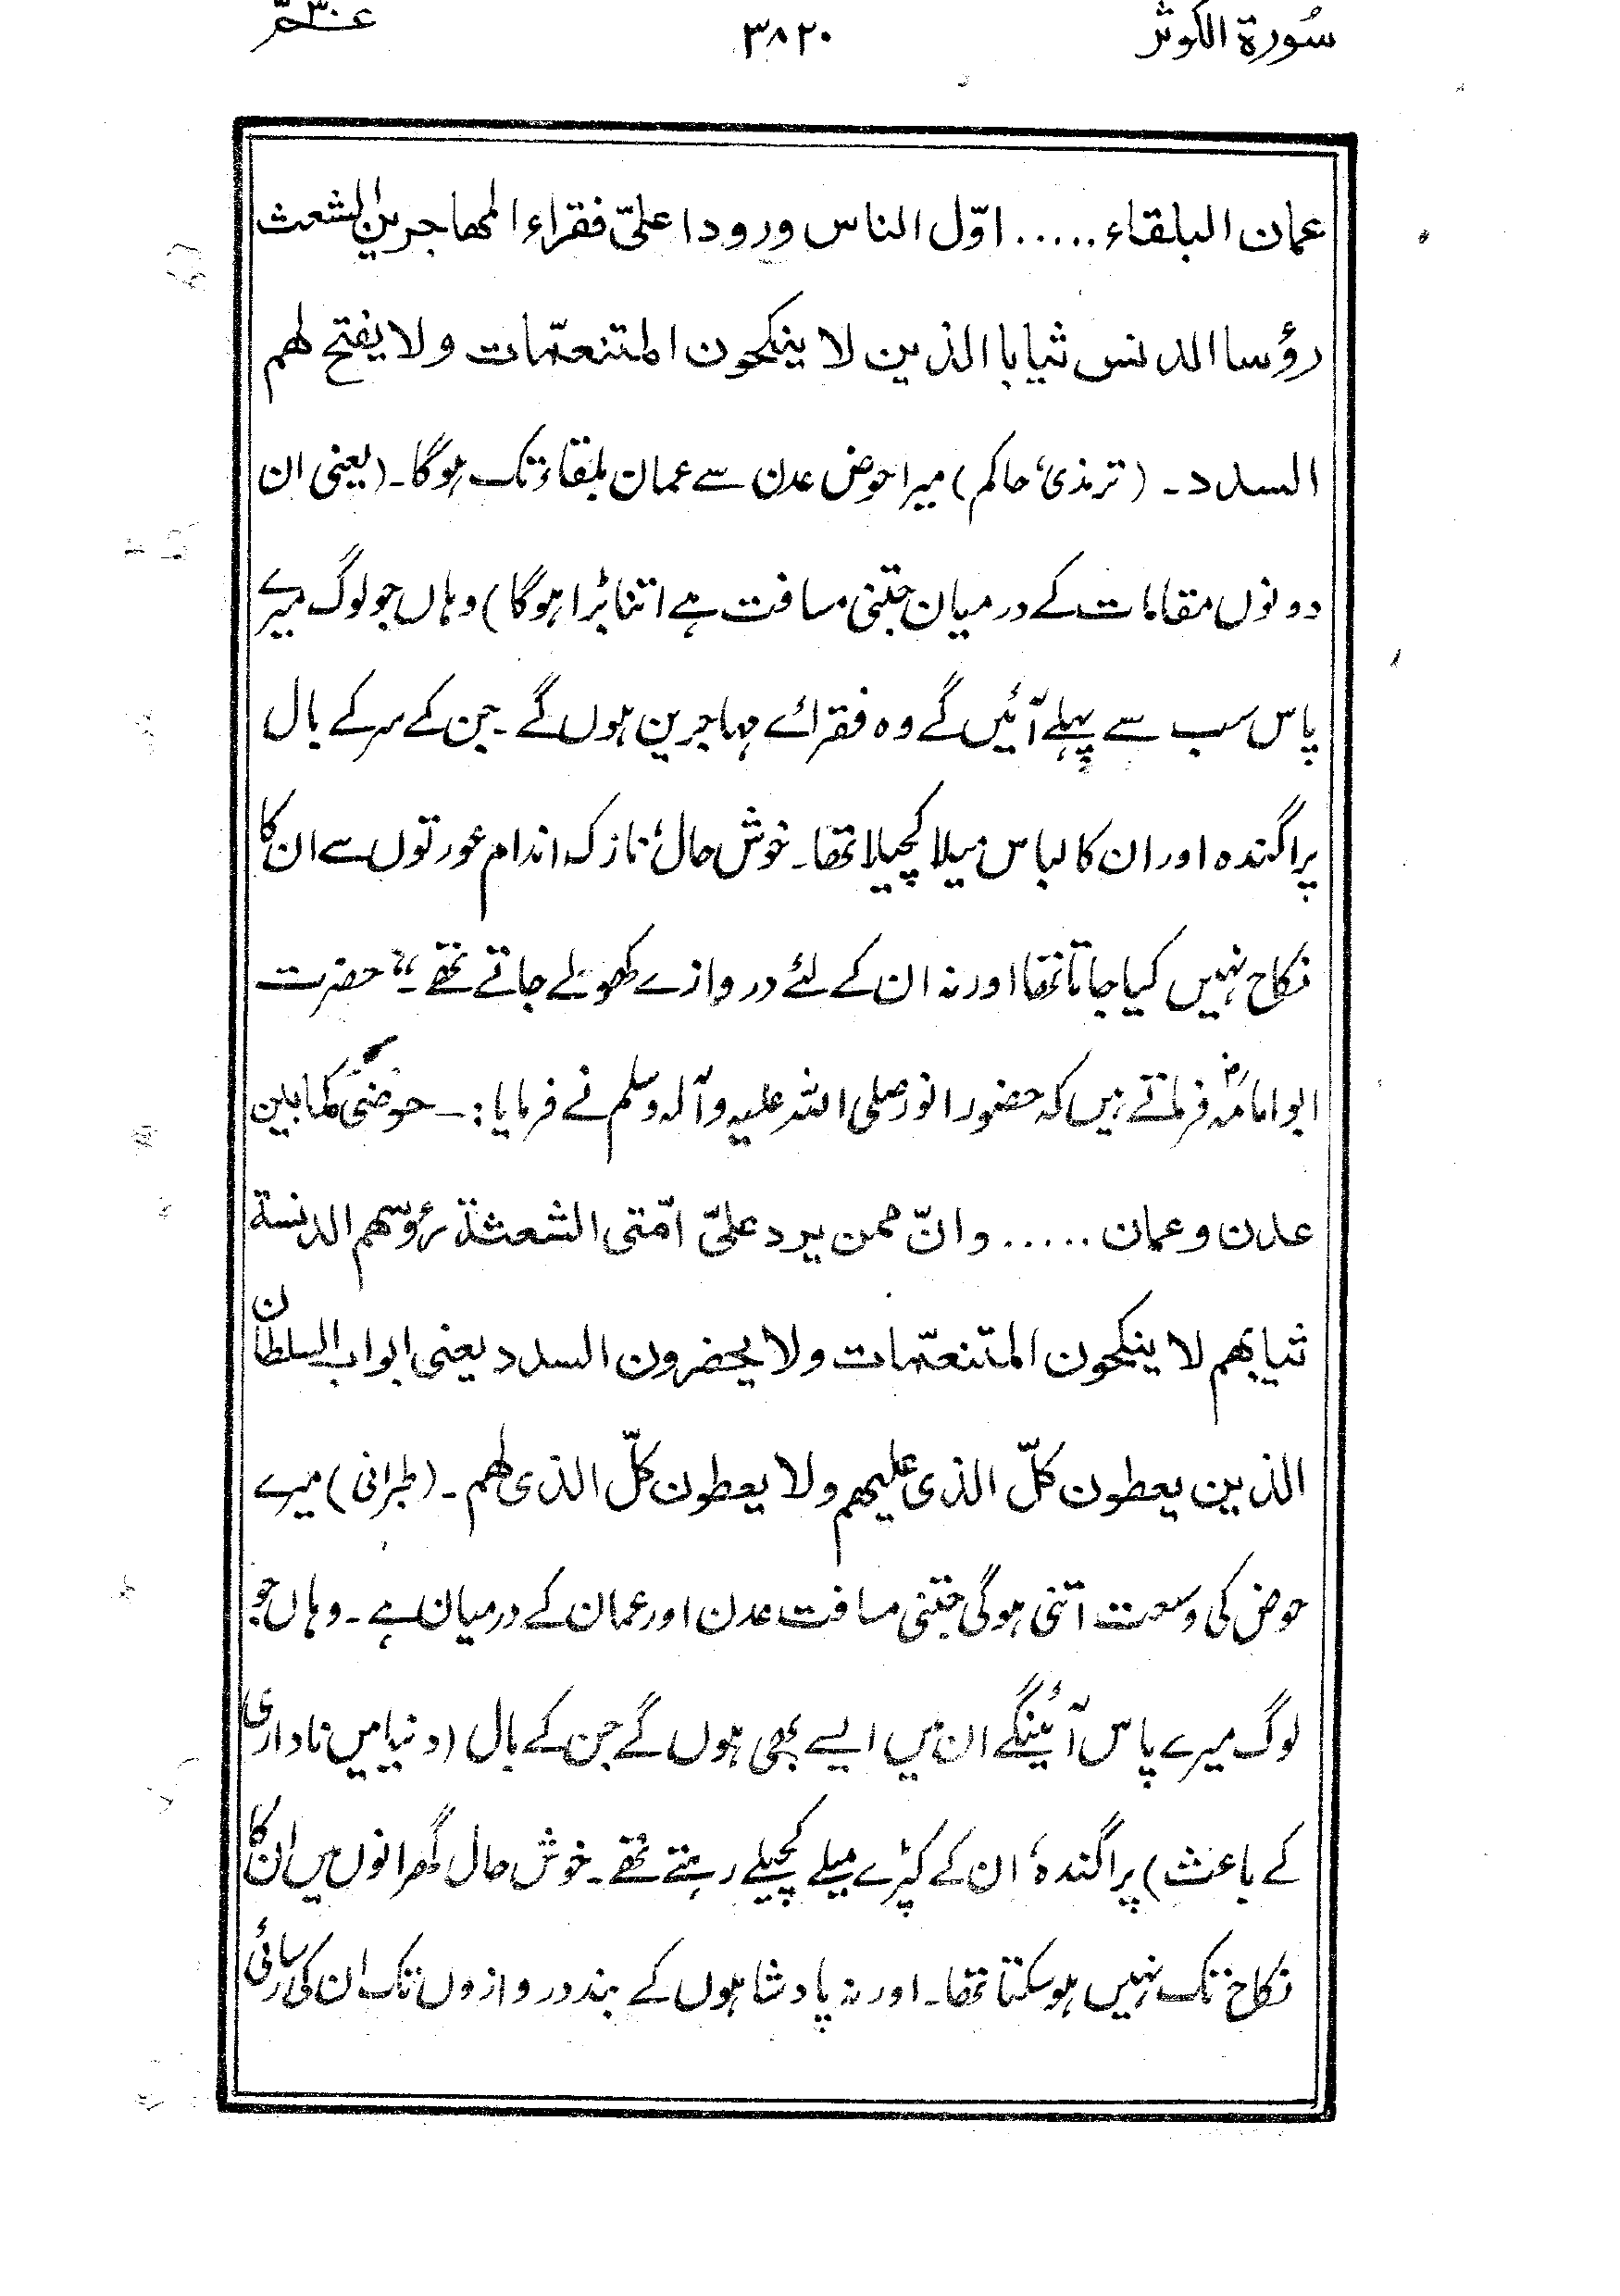 سُورة الکوثر ۳۸۲۰ عۤمّ ۳۰
عمان البلقاء ..... اوّل الناس ورودا علیّ فقراء المھاجرین الشعث
رؤسا الدنس ثیابا الذین لا ینکحون المتنعّمات ولا یفتح لھم
السدد۔ (ترمذی، حاکم) میرا حوض عدن سے عمان بلقاء تک ہوگا۔ (یعنی ان
دونوں مقامات کے درمیان جتنی مسافت ہے اتنا بڑا ہوگا) وہاں جو لوگ میرے
پاس سب سے پہلے آئیں گے وہ فقرائے مہاجرین ہوں گے۔ جن کے سر کے بال
پراگندہ اور ان کا لباس میلا کچیلا تھا۔ خوش حال، نازک اندام عورتوں سے ان کا
نکاح نہیں کیا جاتا تھا اور نہ ان کے لئے دروازے کھولے جاتے تھے۔“ حضرت
ابو امامہؓ فرماتے ہیں کہ حضور انور صلی اللہ علیہ وآلہ وسلم نے فرمایا:۔ حوضی کما بین
عدن وعمان ..... وانّ ممن یرد علیّ امّتی الشعثة رؤسھم الدنسة
ثیابھم لا ینکحون المتنعّمات ولا یحضرون السدد یعنی ابواب السلطان
الذین یعطون کلّ الذی علیھم ولا یعطون کلّ الذی لھم۔ (طبرانی) میرے
حوض کی وسعت اتنی ہوگی جتنی مسافت عدن اور عمان کے درمیان ہے۔ وہاں جو
لوگ میرے پاس آئینگے ان میں ایسے بھی ہوں گے جن کے بال (دنیا میں ناداری
کے باعث) پراگندہ، ان کے کپڑے میلے کچیلے رہتے تھے۔ خوش حال گھرانوں میں ان کا
نکاح تک نہیں ہوسکتا تھا۔ اور نہ پادشاہوں کے بند دروازوں تک ان کی رسائی